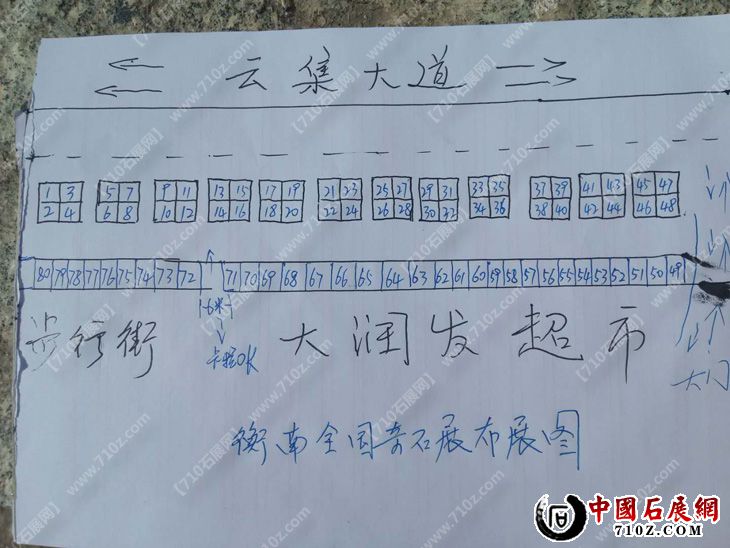 云集大道
1 3 5 7 9 11 13 15 17 19 21 23 25 27 29 31 33 35 37 39 41 43 45 47
2 4 6 8 10 12 14 16 18 20 22 24 26 28 30 32 34 36 38 40 42 44 46 48
80 79 78 77 76 75 74 73 72 71 70 69 68 67 66 65 64 63 62 61 60 59 58 57 56 55 54 53 52 51 50 49
6米
步行街 大润发超市 大门
衡南全国奇石展布展图
中國石展網
710Z.COM
【710石展网】
www.710z.com